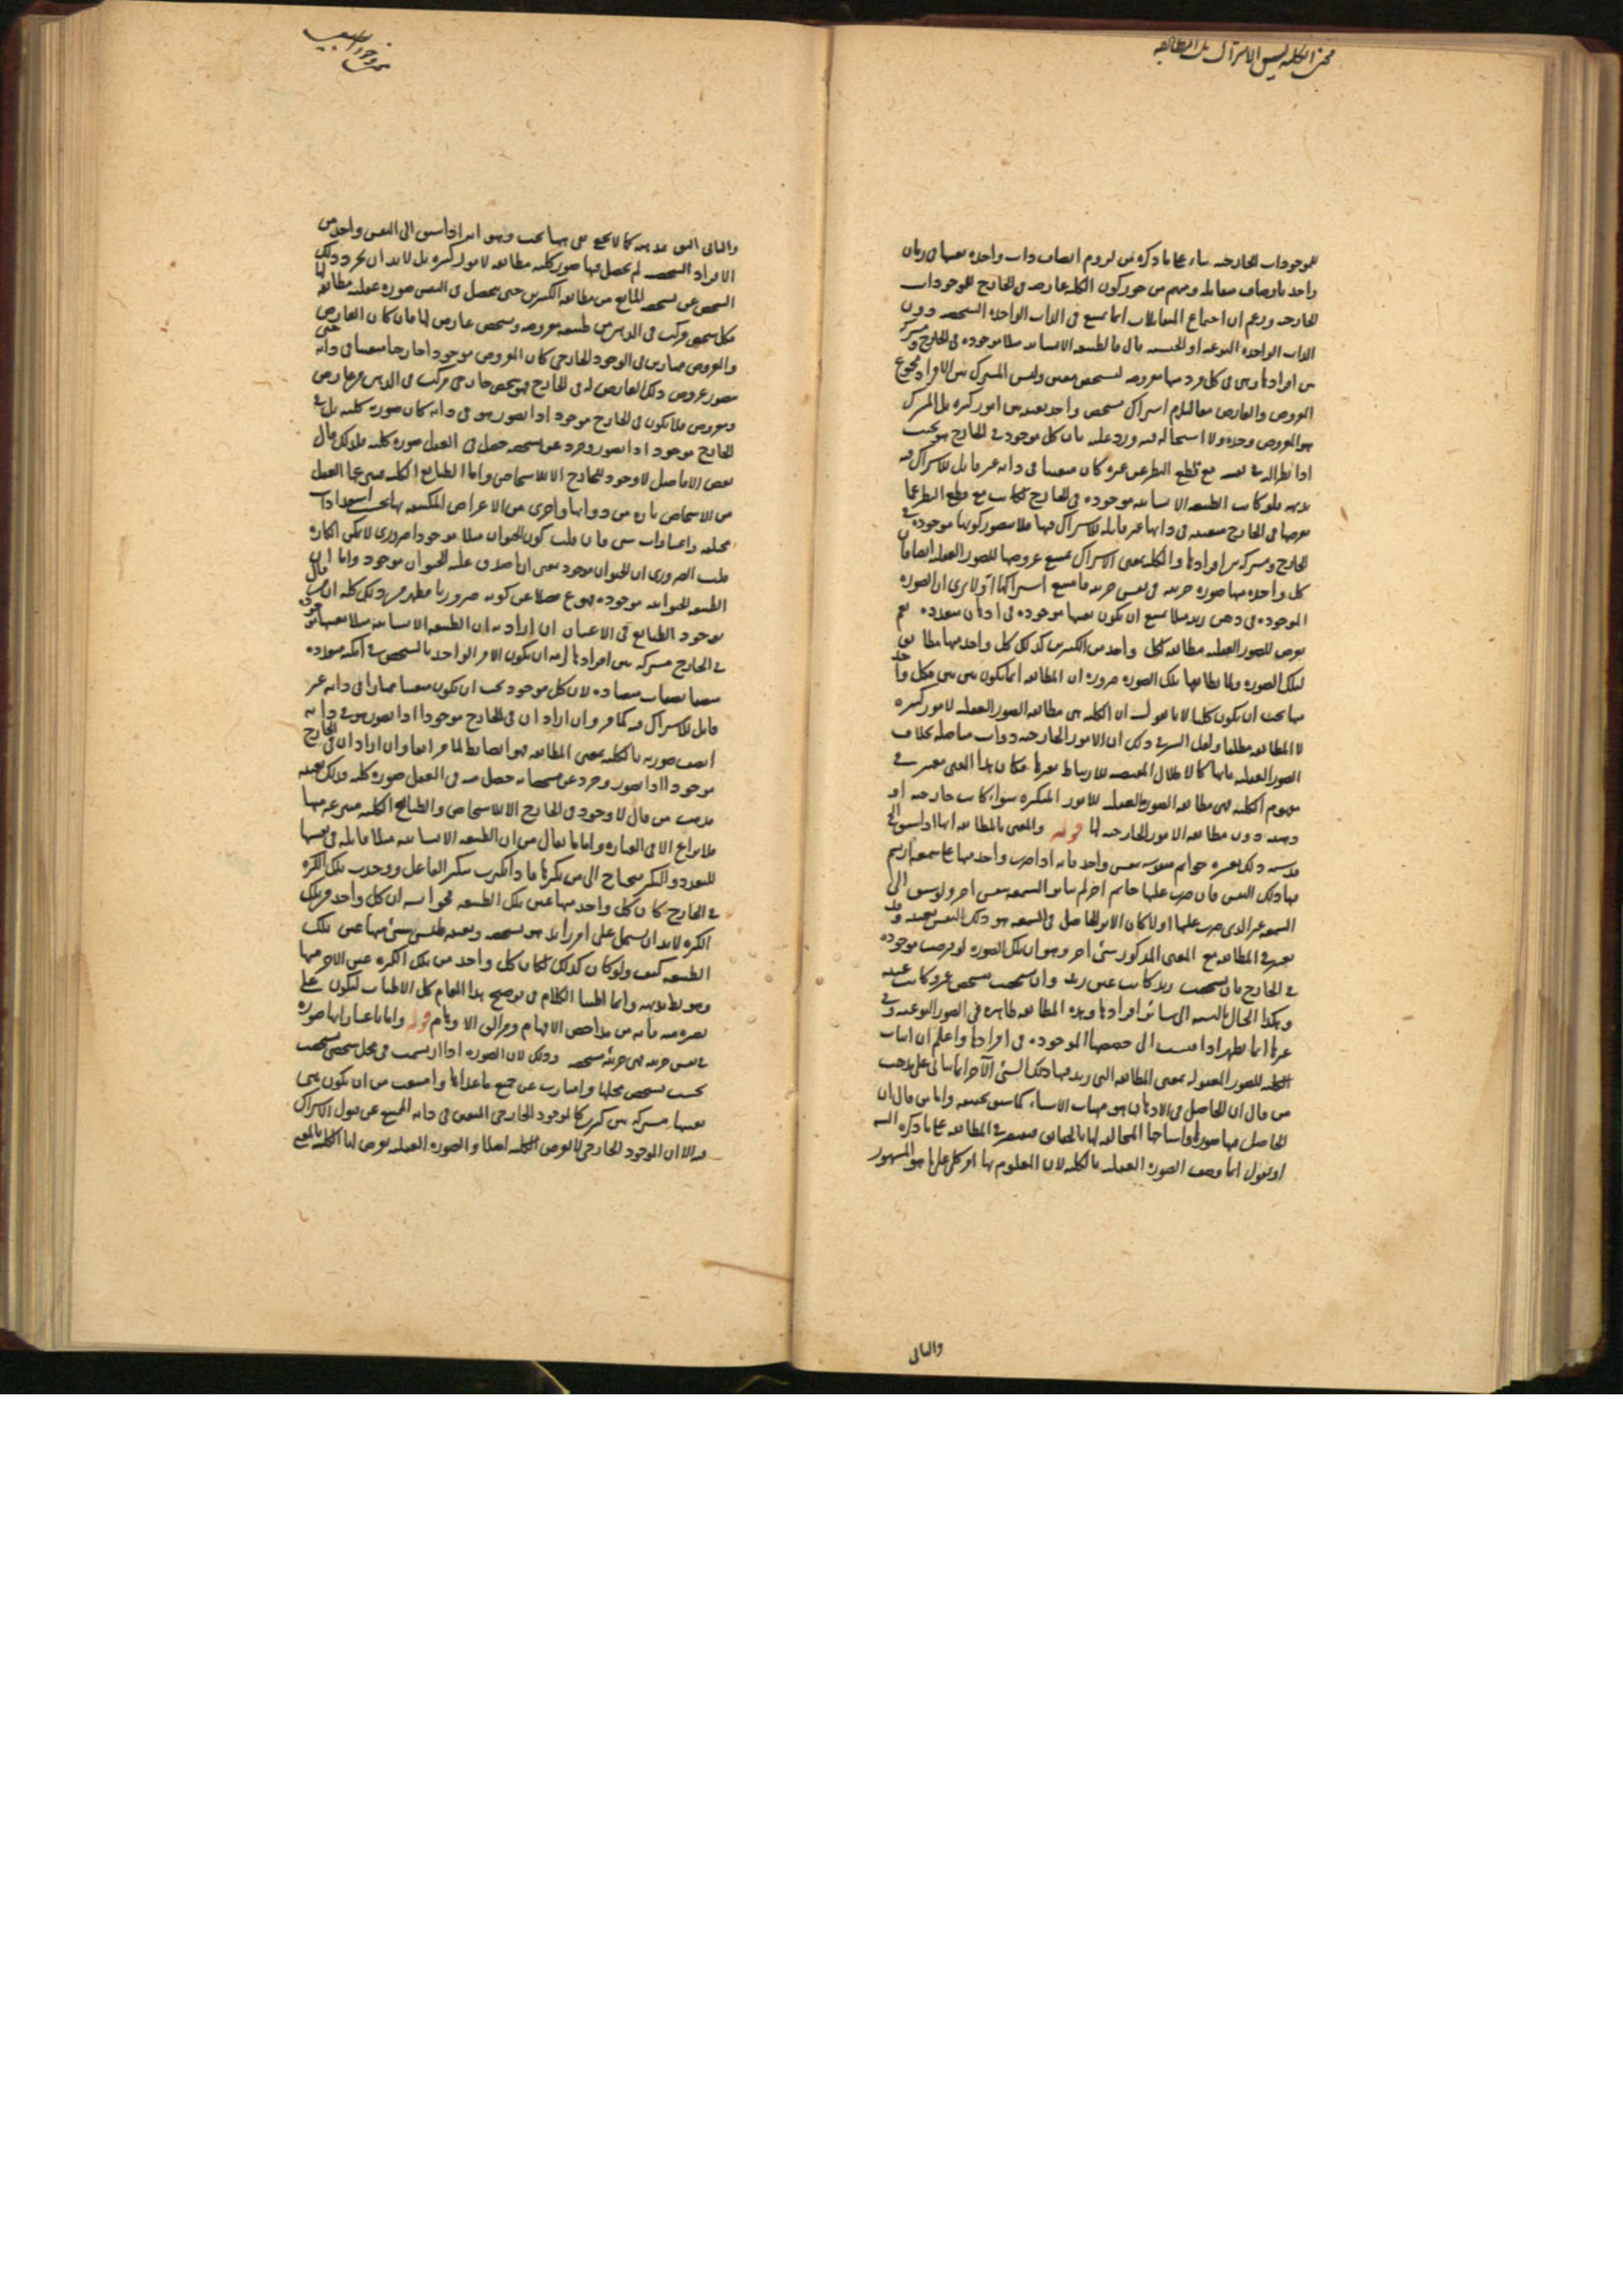 معنى الكلية ليس الاشتراك بل المطابقة
للموجودات الخارجية بناء على ما ذكره من لزوم اتصاف ذات واحدة بعينها في زمان
واحد باوصاف متقابلة ومنهم من جوز كون الكلية عارضة في الخارج للموجودات
الخارجية وزعم ان اجتماع المتقابلات انما يمتنع في الذات الواحدة الشخصية دون
الذات الواحدة النوعية او الجنسية قال فالطبيعة الانسانية مثلا موجودة في الخارج ومشتركة
بين افرادها وهي في كل فرد منها معروضة لتشخص معين وليس المشترك بين الافراد مجموع
المعروض والعارض معا ليلزم اشتراك شخص واحد بعينه بين امور كثيرة بل المشترك
هو المعروض وحده ولا استحالة فيه ورد عليه بان كل موجود في الخارج هو بحيث
اذا نظر اليه في نفسه مع قطع النظر عن غيره كان متعينا في ذاته غير قابل للاشتراك فيه
بديهة فلو كانت الطبيعة الانسانية موجودة في الخارج لكانت مع قطع النظر عما
يعرضها في الخارج متعينة في ذاتها غير قابلة للاشتراك فيها فلا يتصور كونها موجودة في
الخارج ومشتركة بين افرادها والكلية بمعنى الاشتراك يمتنع عروضها للصور العقلية ايضا فان
كل واحدة منها صورة جزئية في نفس جزئية فامتنع اشتراكها الا يرى ان الصورة
الموجودة في ذهن زيد مثلا يمتنع ان يكون بعينها موجودة في اذهان متعددة نعم
يعرض للصور العقلية مطابقة لكل واحد من الكثيرين كذلك كل واحد منها مطابق
لتلك الصورة ولما يطابقها تلك الصورة ضرورة ان المطابقة انما يكون بين بين فكل واحد
منها يجب ان يكون كليا لانا نقول ان الكلية هي مطابقة الصور العقلية لامور كثيرة
لا المطابقة مطلقا ولعل السر في ذلك ان الامور الخارجية ذوات متاصلة بخلاف
الصور العقلية فانها كالاظلال المقتضية للارتباط بغيرها فكان هذا المعنى معتبر في
مفهوم الكلية فهي مطابقة الصورة العقلية للامور المتكثرة سواء كانت خارجية او
ذهنية دون مطابقة الامور الخارجية لها قوله والمعنى بالمطابقة انها اذا سبق الخ
قد شبه ذلك بعشرة خواتم منقوشة بنقش واحد فانه اذا ضرب واحد منها على شمعة ارتسم
فيها ذلك النقش فان ضرب عليها خاتم اخر لم يتاثر الشمعة بنقش اخر ولو سبق الى
الشمعة غير الذي ضرب عليها اولا كان الاثر الحاصل في الشمعة هو ذلك النقش بعينه وقد
يعتبر في المطابقة مع المعنى المذكور شئ اخر وهو ان تلك الصورة لو فرضت موجودة
في الخارج فان تشخصت بزيد كانت عين زيد وان تشخصت بتشخص عمرو كانت عينه
وهكذا الحال بالنسبة الى سائر افرادها وهذه المطابقة ظاهرة في الصور النوعية وفي
غيرها انما يظهر اذا نسبت الى حصصها الموجودة في افرادها واعلم ان اثبات
الكلية للصور المعقولة بمعنى المطابقة التي زيد فيها ذلك الشئ الآخر انما يتاتى على مذهب
من قال ان الحاصل في الاذهان هو مهيات الاشياء كما سبق تحقيقه واما من قال ان
الحاصل فيها صورها واشباحها المخالفة لها بالحقائق فيعتبر في المطابقة على ما ذكره السيد
او يقول انما وصف الصورة العقلية بالكلية لان المعلوم بها امر كلي على ما هو المشهور
والثاني
والثاني اليق بديهة كما لا يخفى على ... وهو امر اذا سبق الى النفس واحد من
الافراد الشخصية لم يحصل فيها صور كلية مطابقة لامور كثيرة بل لابد ان يجرد ذلك
الشخص عن تشخصه المانع من مطابقة الكثيرين حتى يحصل في النفس صورة عقلية مطابقة لها
فكل شخص مركب في الذهن من طبيعة معروضة وتشخص عارض لها فان كان العارض
والمعروض متمايزين في الوجود الخارجي كان المعروض موجودا خارجا متعينا في ذاته حتى
يتصور عروض ذلك العارض له في الخارج فهو شخص خارجي مركب في الذهن من عارض
ومعروض فلا يكون في الخارج موجود اذا تصور هو في ذاته كان صورة كلية بل في
الخارج موجود اذا تصور وجرد عن تشخصه حصل في العقل صورة كلية فلذلك قال
بعض الافاضل لا وجود في الخارج الا للاشخاص واما الطبايع الكلية فينتزعها العقل
من الاشخاص تارة من ذواتها واخرى من الاعراض المكتنفة بها بحسب استعدادات
مختلفة واعتبارات شتى فان قلت كون الحيوان مثلا موجودا ضروري لا يمكن انكاره
قلت الضروري ان الحيوان موجود بمعنى ان ما صدق عليه الحيوان موجود واما ان
الطبيعة الحيوانية موجودة فهو ممنوع فضلا عن كونه ضروريا فظهر من ذلك كله ان من قال
بوجود الطبايع في الاعيان ان اراد به ان الطبيعة الانسانية مثلا بعينها موجودة
في الخارج مشتركة بين افرادها لزمه ان يكون الامر الواحد بالشخص في امكنة متعددة
متصفا بصفات متضادة لان كل موجود يجب ان يكون متعينا ممتازا في ذاته غير
قابل للاشتراك فيه كما مر وان اراد ان في الخارج موجودا اذا تصور هو في ذاته
اتصف صورته بالكلية بمعنى المطابقة فهو ايضا باطل لما مر انفا وان اراد ان في الخارج
موجودا اذا تصور وجرد عن مشخصاته حصل منه في العقل صورة كلية فذلك بعينه
مذهب من قال لا وجود في الخارج الا للاشخاص والطبايع الكلية منتزعة منها
فلا نزاع الا في العبارة واما ما يقال من ان الطبيعة الانسانية مثلا قابلة في نفسها
للتعدد والتكثر فتحتاج الى من يكثرها فاذا تكثرت بتكثير الفاعل ووجدت تلك الكثرة
في الخارج كان كل واحد منها عين تلك الطبيعة فجوابه ان كل واحد من تلك
الكثرة لابد ان يشتمل على امر زائد هو تشخصه وتعينه فليس شئ منها عين تلك
الطبيعة كيف ولو كان كذلك لكان كل واحد من تلك الكثرة عين الاخر منها
وهو بط بديهة وانما اطنبنا الكلام في توضيح هذا المقام كل الاطناب ليكون على
بصيرة منه فانه من مداحض الافهام ومزالق الاوهام قوله واما باعتبار انها صورة
في نفس جزئية فهي جزئية متشخصة وذلك لان الصورة اذا ارتسمت في محل شخصي تشخصت
بحسب تشخص محلها وامتازت عن جميع ما عداها وامتنعت من ان يكون هي
بعينها مشتركة بين كثيرين كالموجود الخارجي المتعين في ذاته الممتنع عن قبول الاشتراك
فيه الا ان الموجود الخارجي لا يعرض له الكلية اصلا والصورة العقلية يعرض لها الكلية بالمعنى